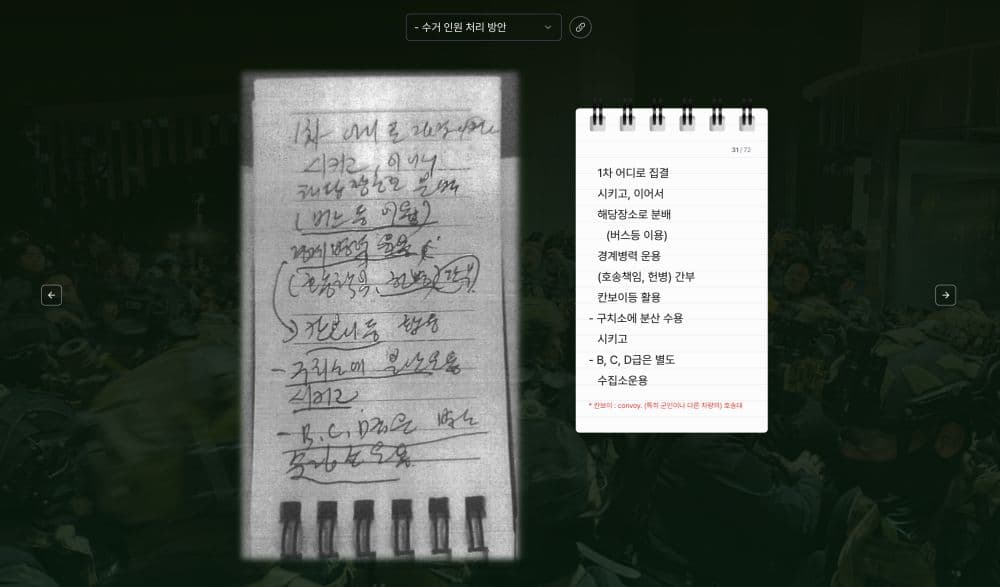 - 수거 인원 처리 방안
1차 어디로 집결
시키고, 이어서
해당장소로 분배
(버스등 이용)
경계병력 운용
(호송책임, 헌병) 간부
칸보이등 활용
- 구치소에 분산 수용
시키고
- B, C, D급은 별도
수집소운용
31 / 72
1차 어디로 집결
시키고, 이어서
해당장소로 분배
(버스등 이용)
경계병력 운용
(호송책임, 헌병) 간부
칸보이등 활용
- 구치소에 분산 수용
시키고
- B, C, D급은 별도
수집소운용
* 칸보이 : convoy. (특히 군인이나 다른 차량의) 호송대